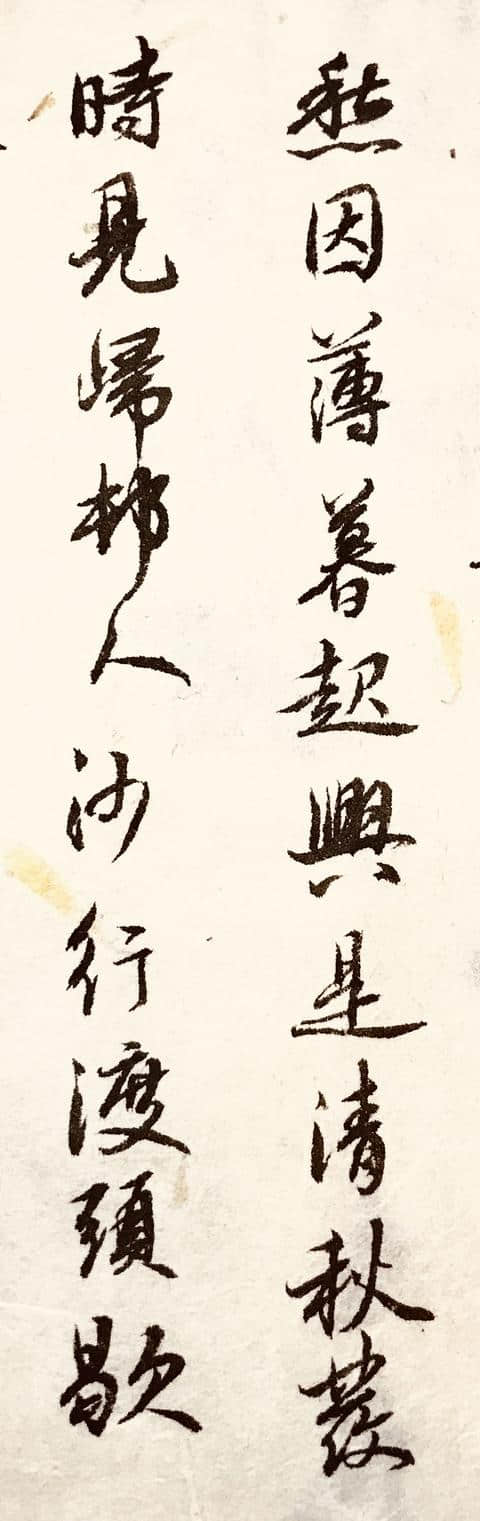 愁因薄暮起興是清秋發
時見歸村人沙行渡頭歇